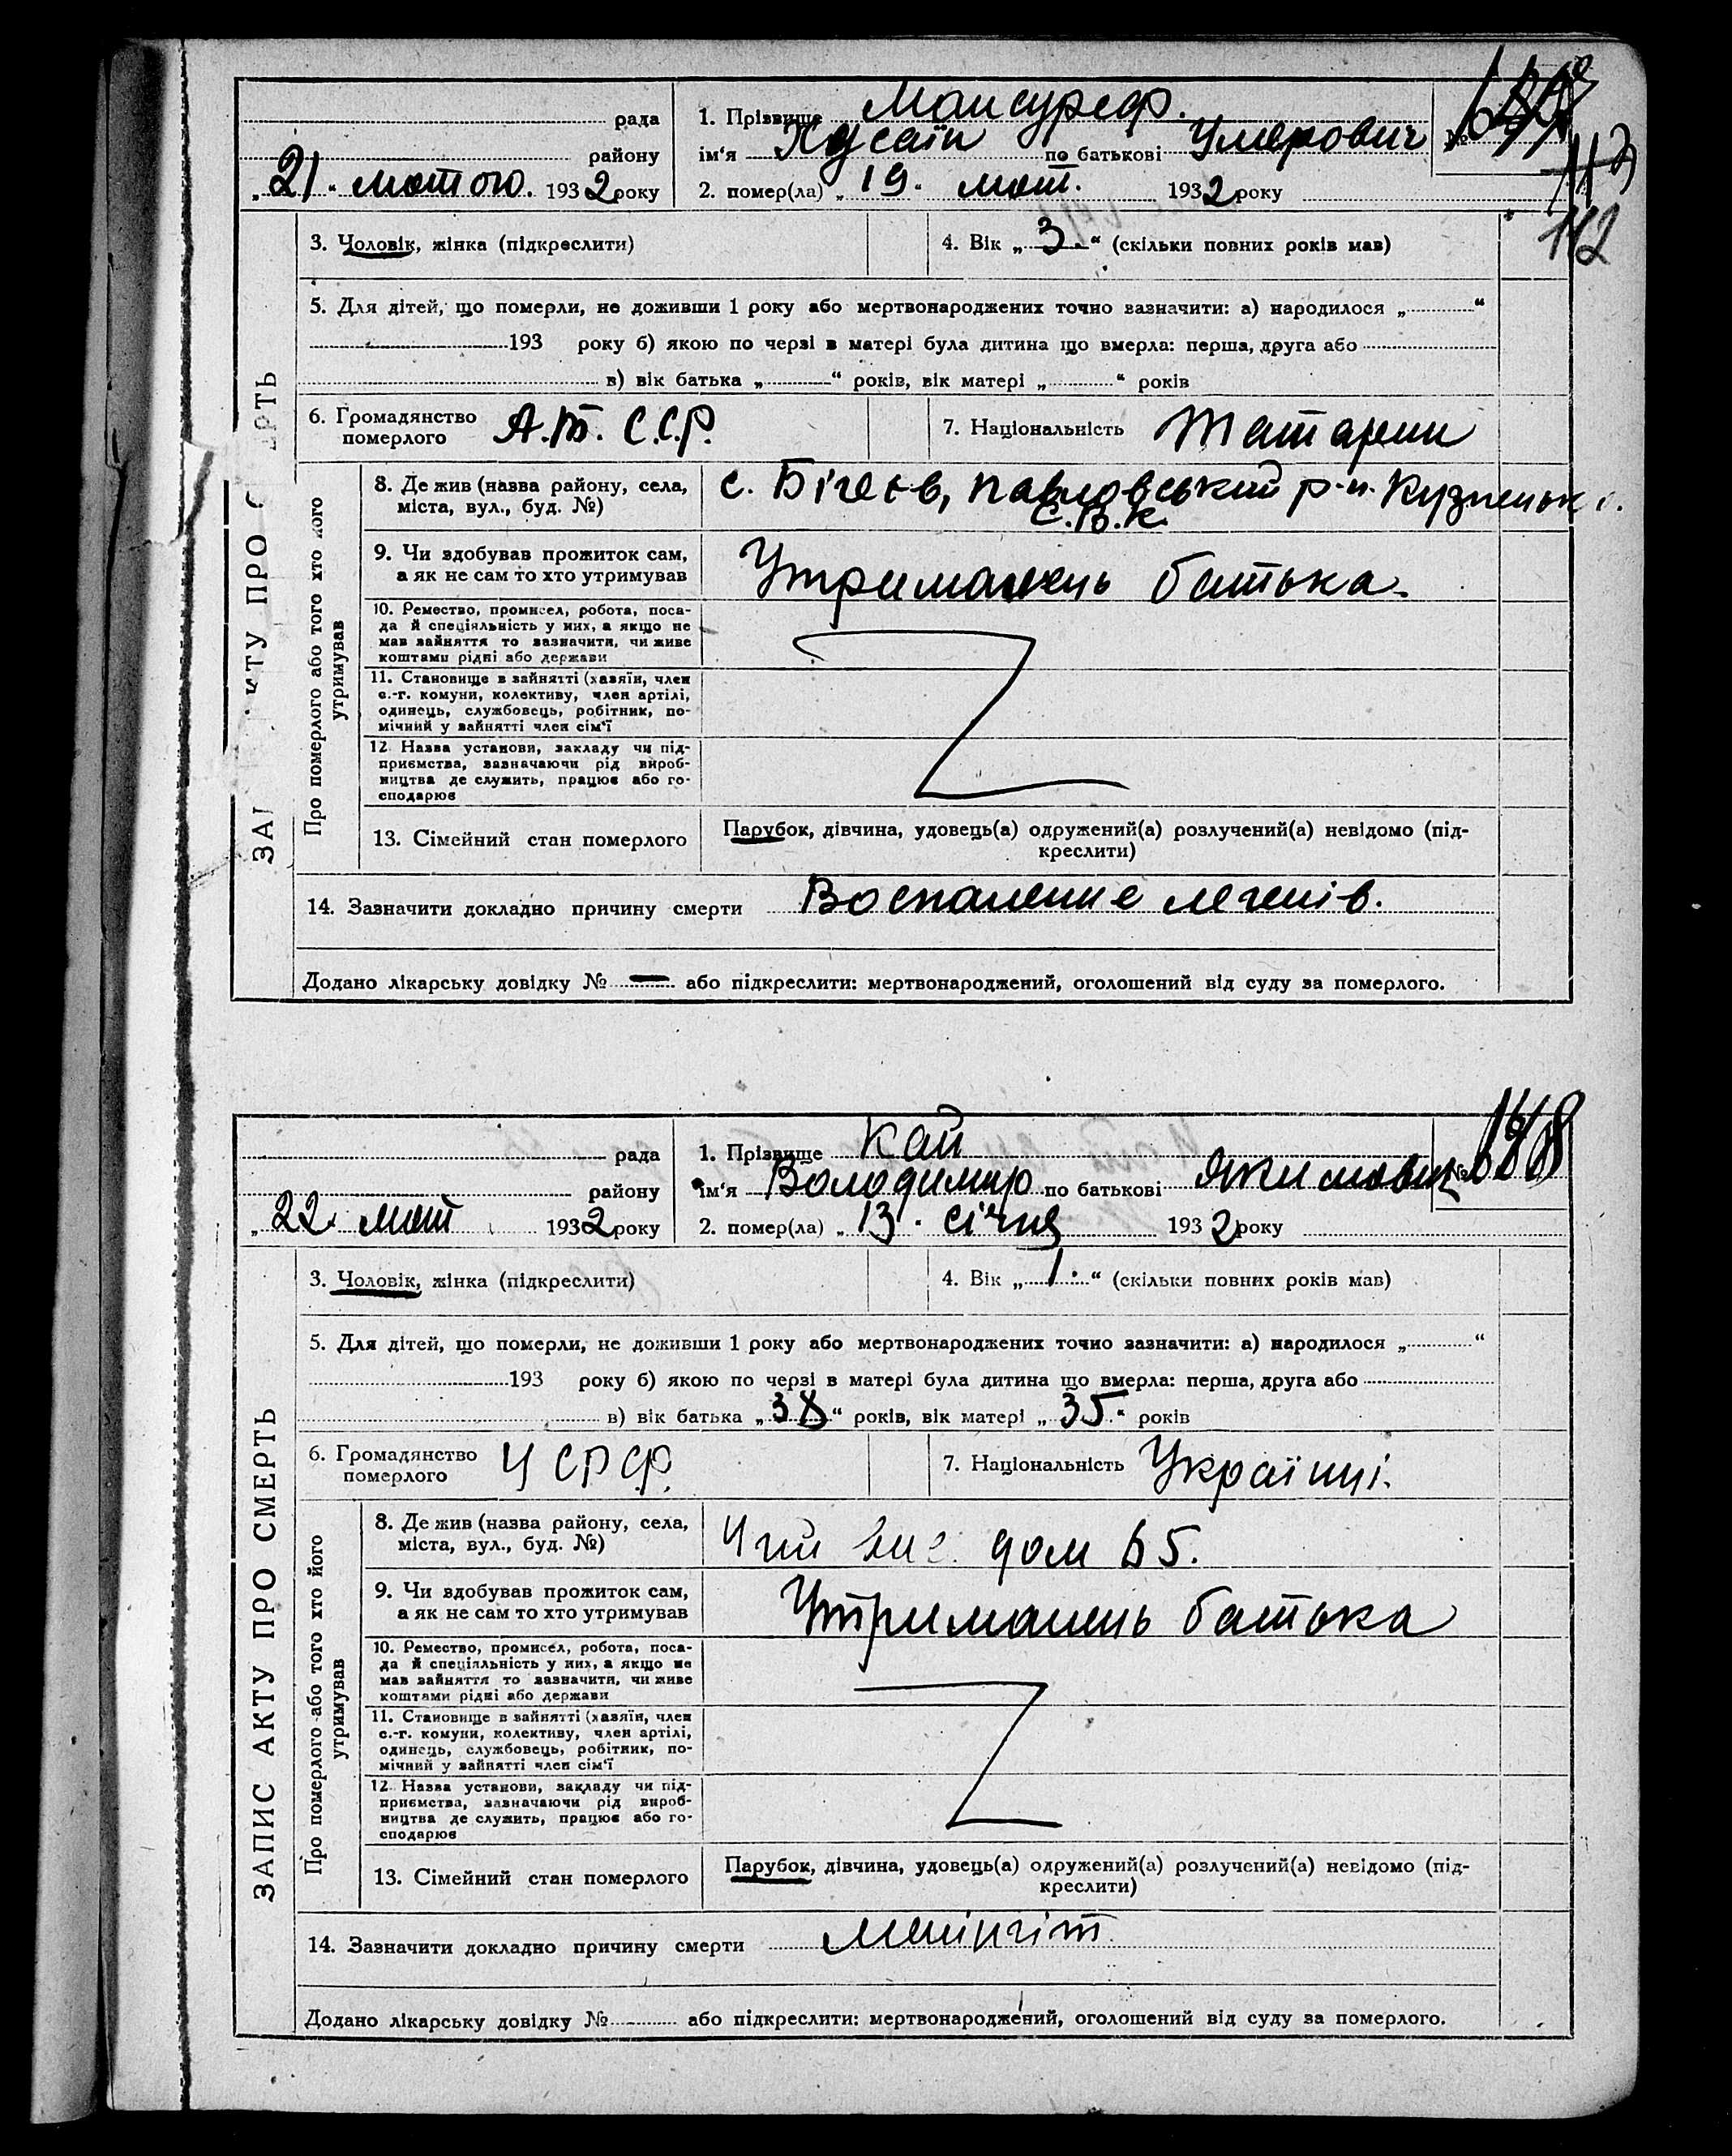 рада
району
„21“ лютого. 1932 року
1. Прізвище Мансуреф.
ім'я Хусаїн по батькові Умерович №
2. помер(ла) „19“ лют. 1932 року
112
3. Чоловік, жінка (підкреслити)
4. Вік „3.“ (скільки повних років мав)
5. Для дітей, що померли, не доживши 1 року або мертвонароджених точно зазначити: а) народилося „ “
193 року б) якою по черзі в матері була дитина що вмерла: перша, друга або
в) вік батька „ “ років, вік матері „ “ років
6. Громадянство померлого А.Т. С.С.Р.
7. Національність Татарин
Про померлого або того хто його утримував
8. Де жив (назва району, села, міста, вул., буд. №)
с. Бігеєв, Павловський р-н.
С.В.К.
9. Чи здобував прожиток сам,
а як не сам то хто утримував
Утриманець батька.
10. Ремество, промисел, робота, поса-
да й спеціяльність у них, а якщо не
мав зайняття то зазначити, чи живе
коштами рідні або держави
11. Становище в зайнятті (хазяїн, член
с.-г. комуни, колективу, член артілі,
одинець, службовець, робітник, по-
мічний у зайнятті член сім'ї
12. Назва установи, закладу чи під-
приємства, зазначаючи рід вироб-
ництва де служить, працює або го-
сподарює
13. Сімейний стан померлого
Парубок, дівчина, удовець(а) одружений(а) розлучений(а) невідомо (під-
креслити)
14. Зазначити докладно причину смерти Воспаление легенів.
Додано лікарську довідку № — або підкреслити: мертвонароджений, оголошений від суду за померлого.
рада
району
„22“ лют 1932 року
1. Прізвище Кай
ім'я Володимир по батькові Якимович №
2. помер(ла) „13“ січня 1932 року
ЗАПИС АКТУ ПРО СМЕРТЬ
3. Чоловік, жінка (підкреслити)
4. Вік „1.“ (скільки повних років мав)
5. Для дітей, що померли, не доживши 1 року або мертвонароджених точно зазначити: а) народилося „ “
193 року б) якою по черзі в матері була дитина що вмерла: перша, друга або
в) вік батька „38“ років, вік матері „35“ років
6. Громадянство померлого УСРР.
7. Національність Українці.
Про померлого або того хто його утримував
8. Де жив (назва району, села,
міста, вул., буд. №)
дом 65.
9. Чи здобував прожиток сам,
а як не сам то хто утримував
Утриманець батька
10. Ремество, промисел, робота, поса-
да й спеціяльність у них, а якщо не
мав зайняття то зазначити, чи живе
коштами рідні або держави
11. Становище в зайнятті (хазяїн, член
с.-г. комуни, колективу, член артілі,
одинець, службовець, робітник, по-
мічний у зайнятті член сім'ї
12. Назва установи, закладу чи під-
приємства, зазначаючи рід вироб-
ництва де служить, працює або го-
сподарює
13. Сімейний стан померлого
Парубок, дівчина, удовець(а) одружений(а) розлучений(а) невідомо (під-
креслити)
14. Зазначити докладно причину смерти менінгіт.
Додано лікарську довідку № або підкреслити: мертвонароджений, оголошений від суду за померлого.